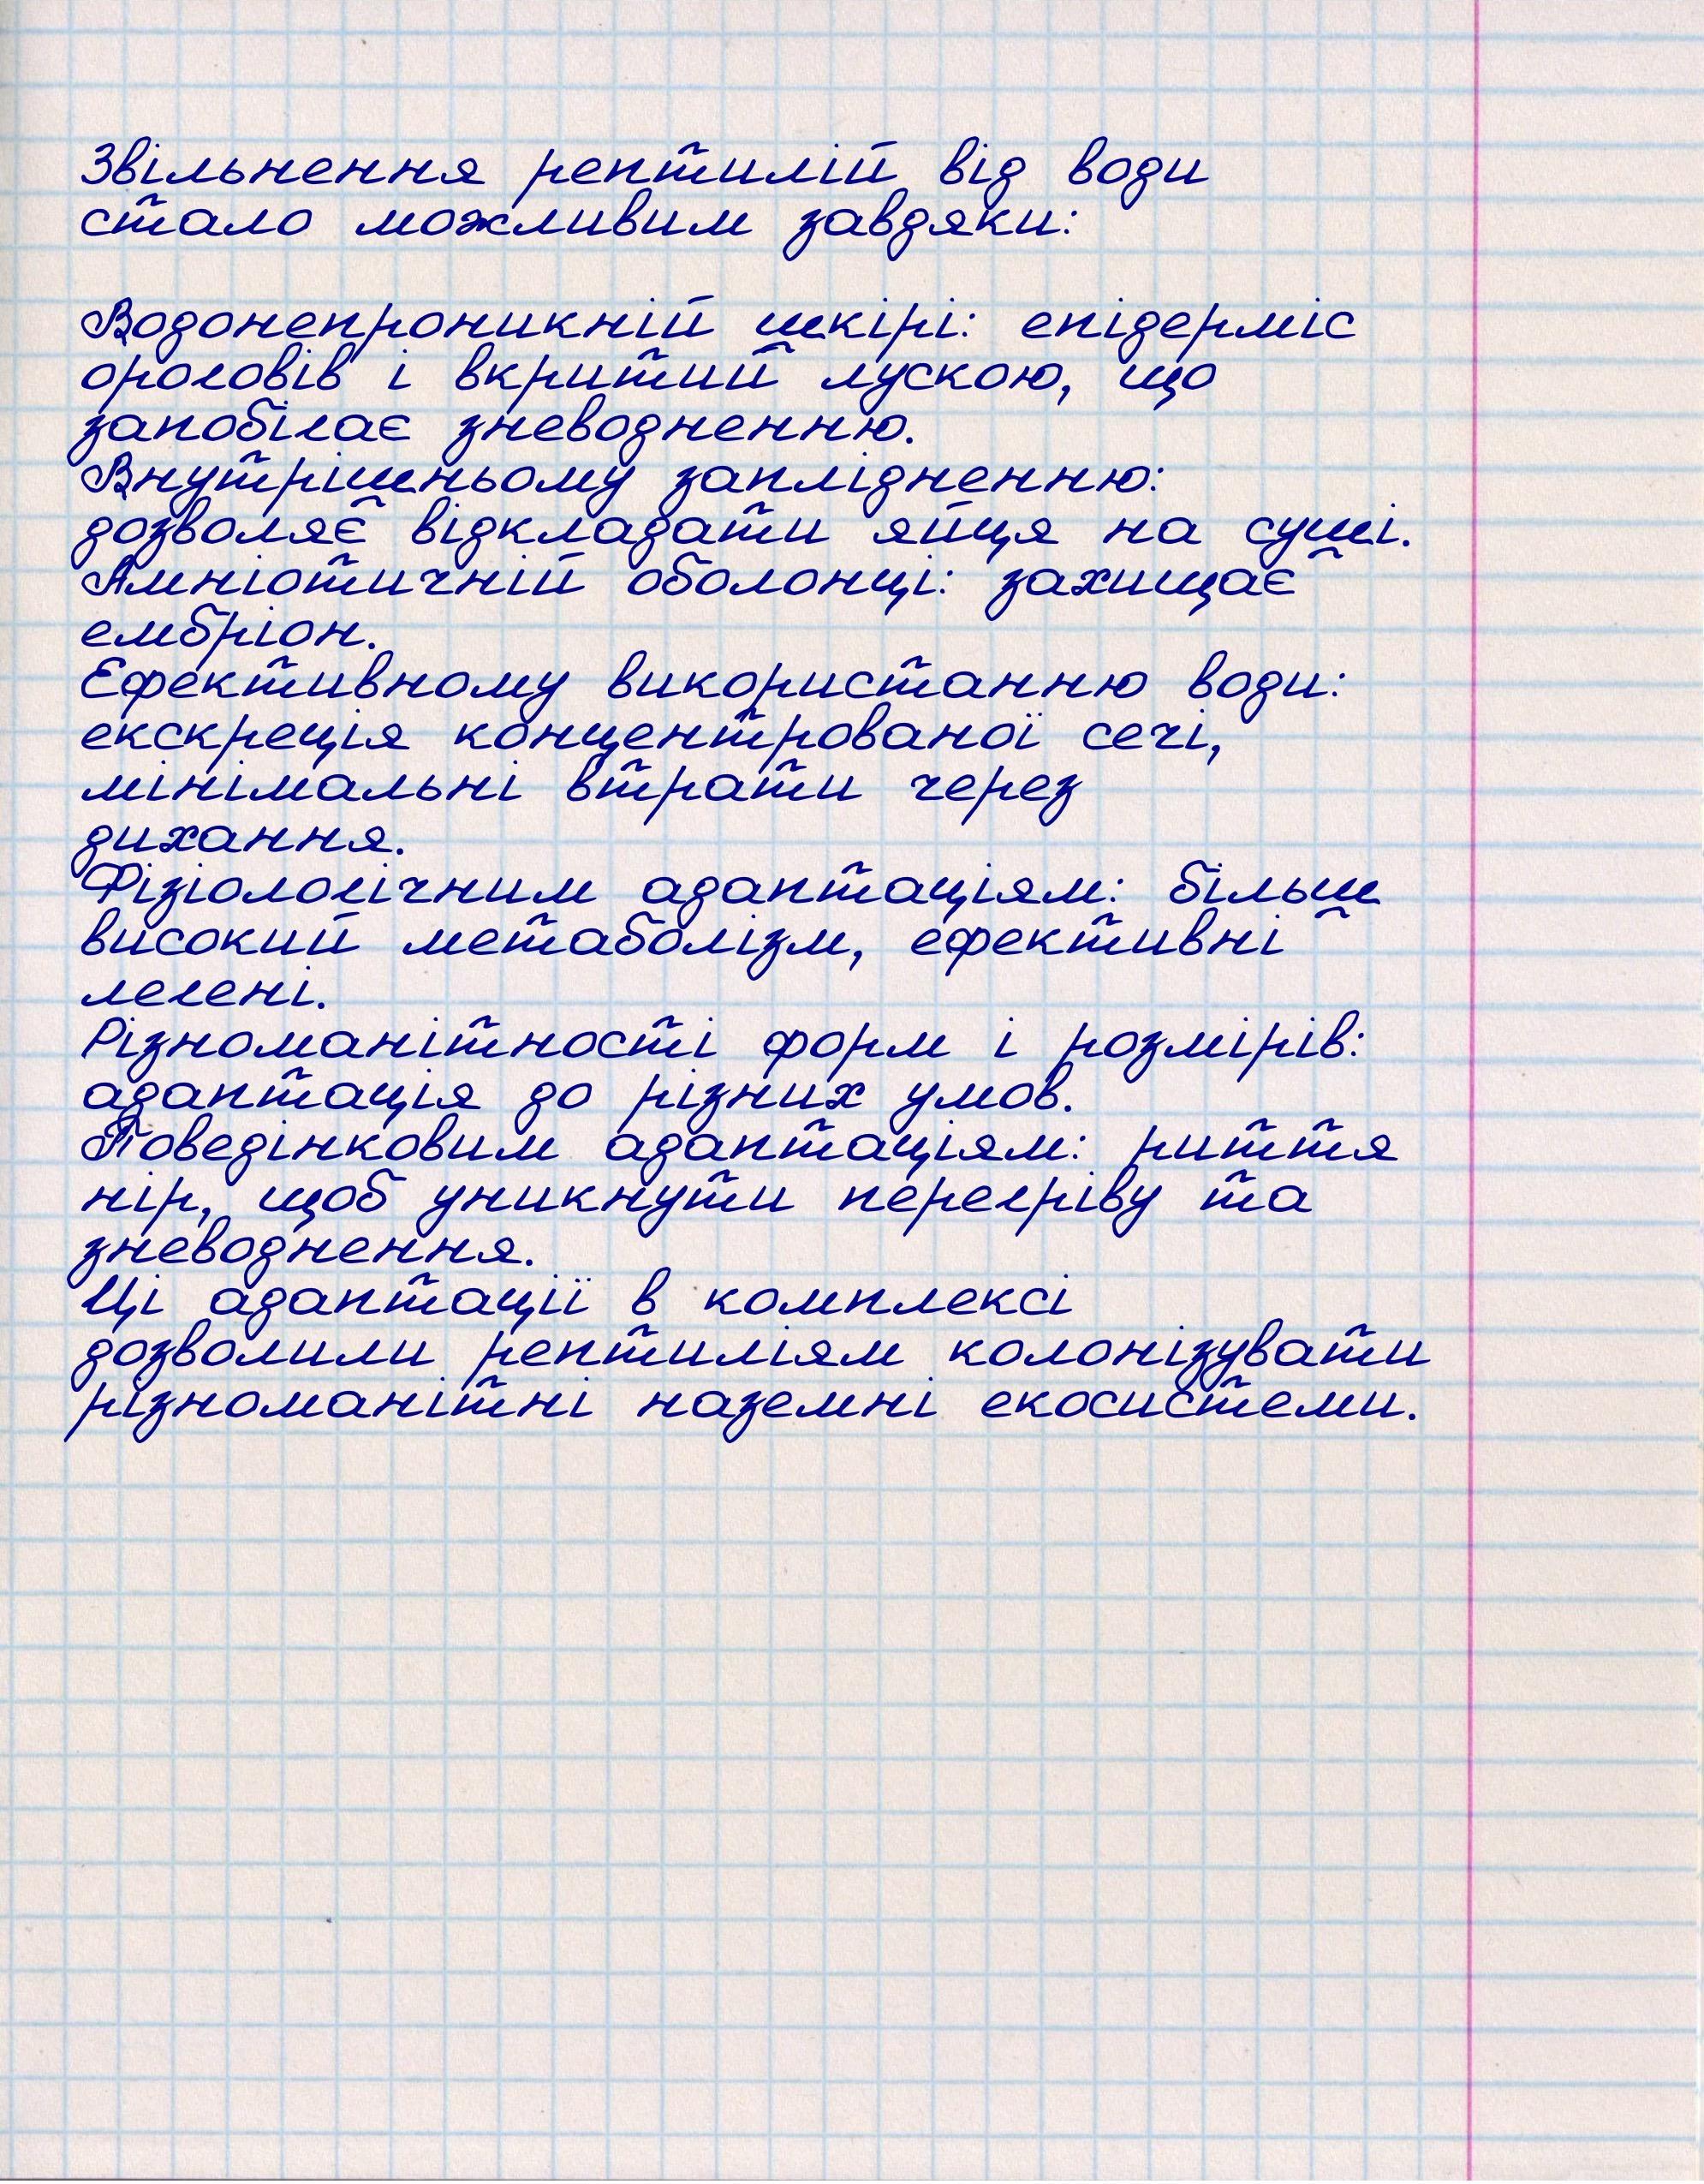 Звільнення рептилій від води
стало можливим завдяки:
Водонепроникній шкірі: епідерміс
ороговів і вкритий лускою, що
запобігає зневодненню.
Внутрішньому заплідненню:
дозволяє відкладати яйця на суші.
Амніотичній оболонці: захищає
ембріон.
Ефективному використанню води:
екскреція концентрованої сечі,
мінімальні втрати через
дихання.
Фізіологічним адаптаціям: більш
високий метаболізм, ефективні
легені.
Різноманітності форм і розмірів:
адаптація до різних умов.
Поведінковим адаптаціям: риття
нір, щоб уникнути перегріву та
зневоднення.
Ці адаптації в комплексі
дозволили рептиліям колонізувати
різноманітні наземні екосистеми.